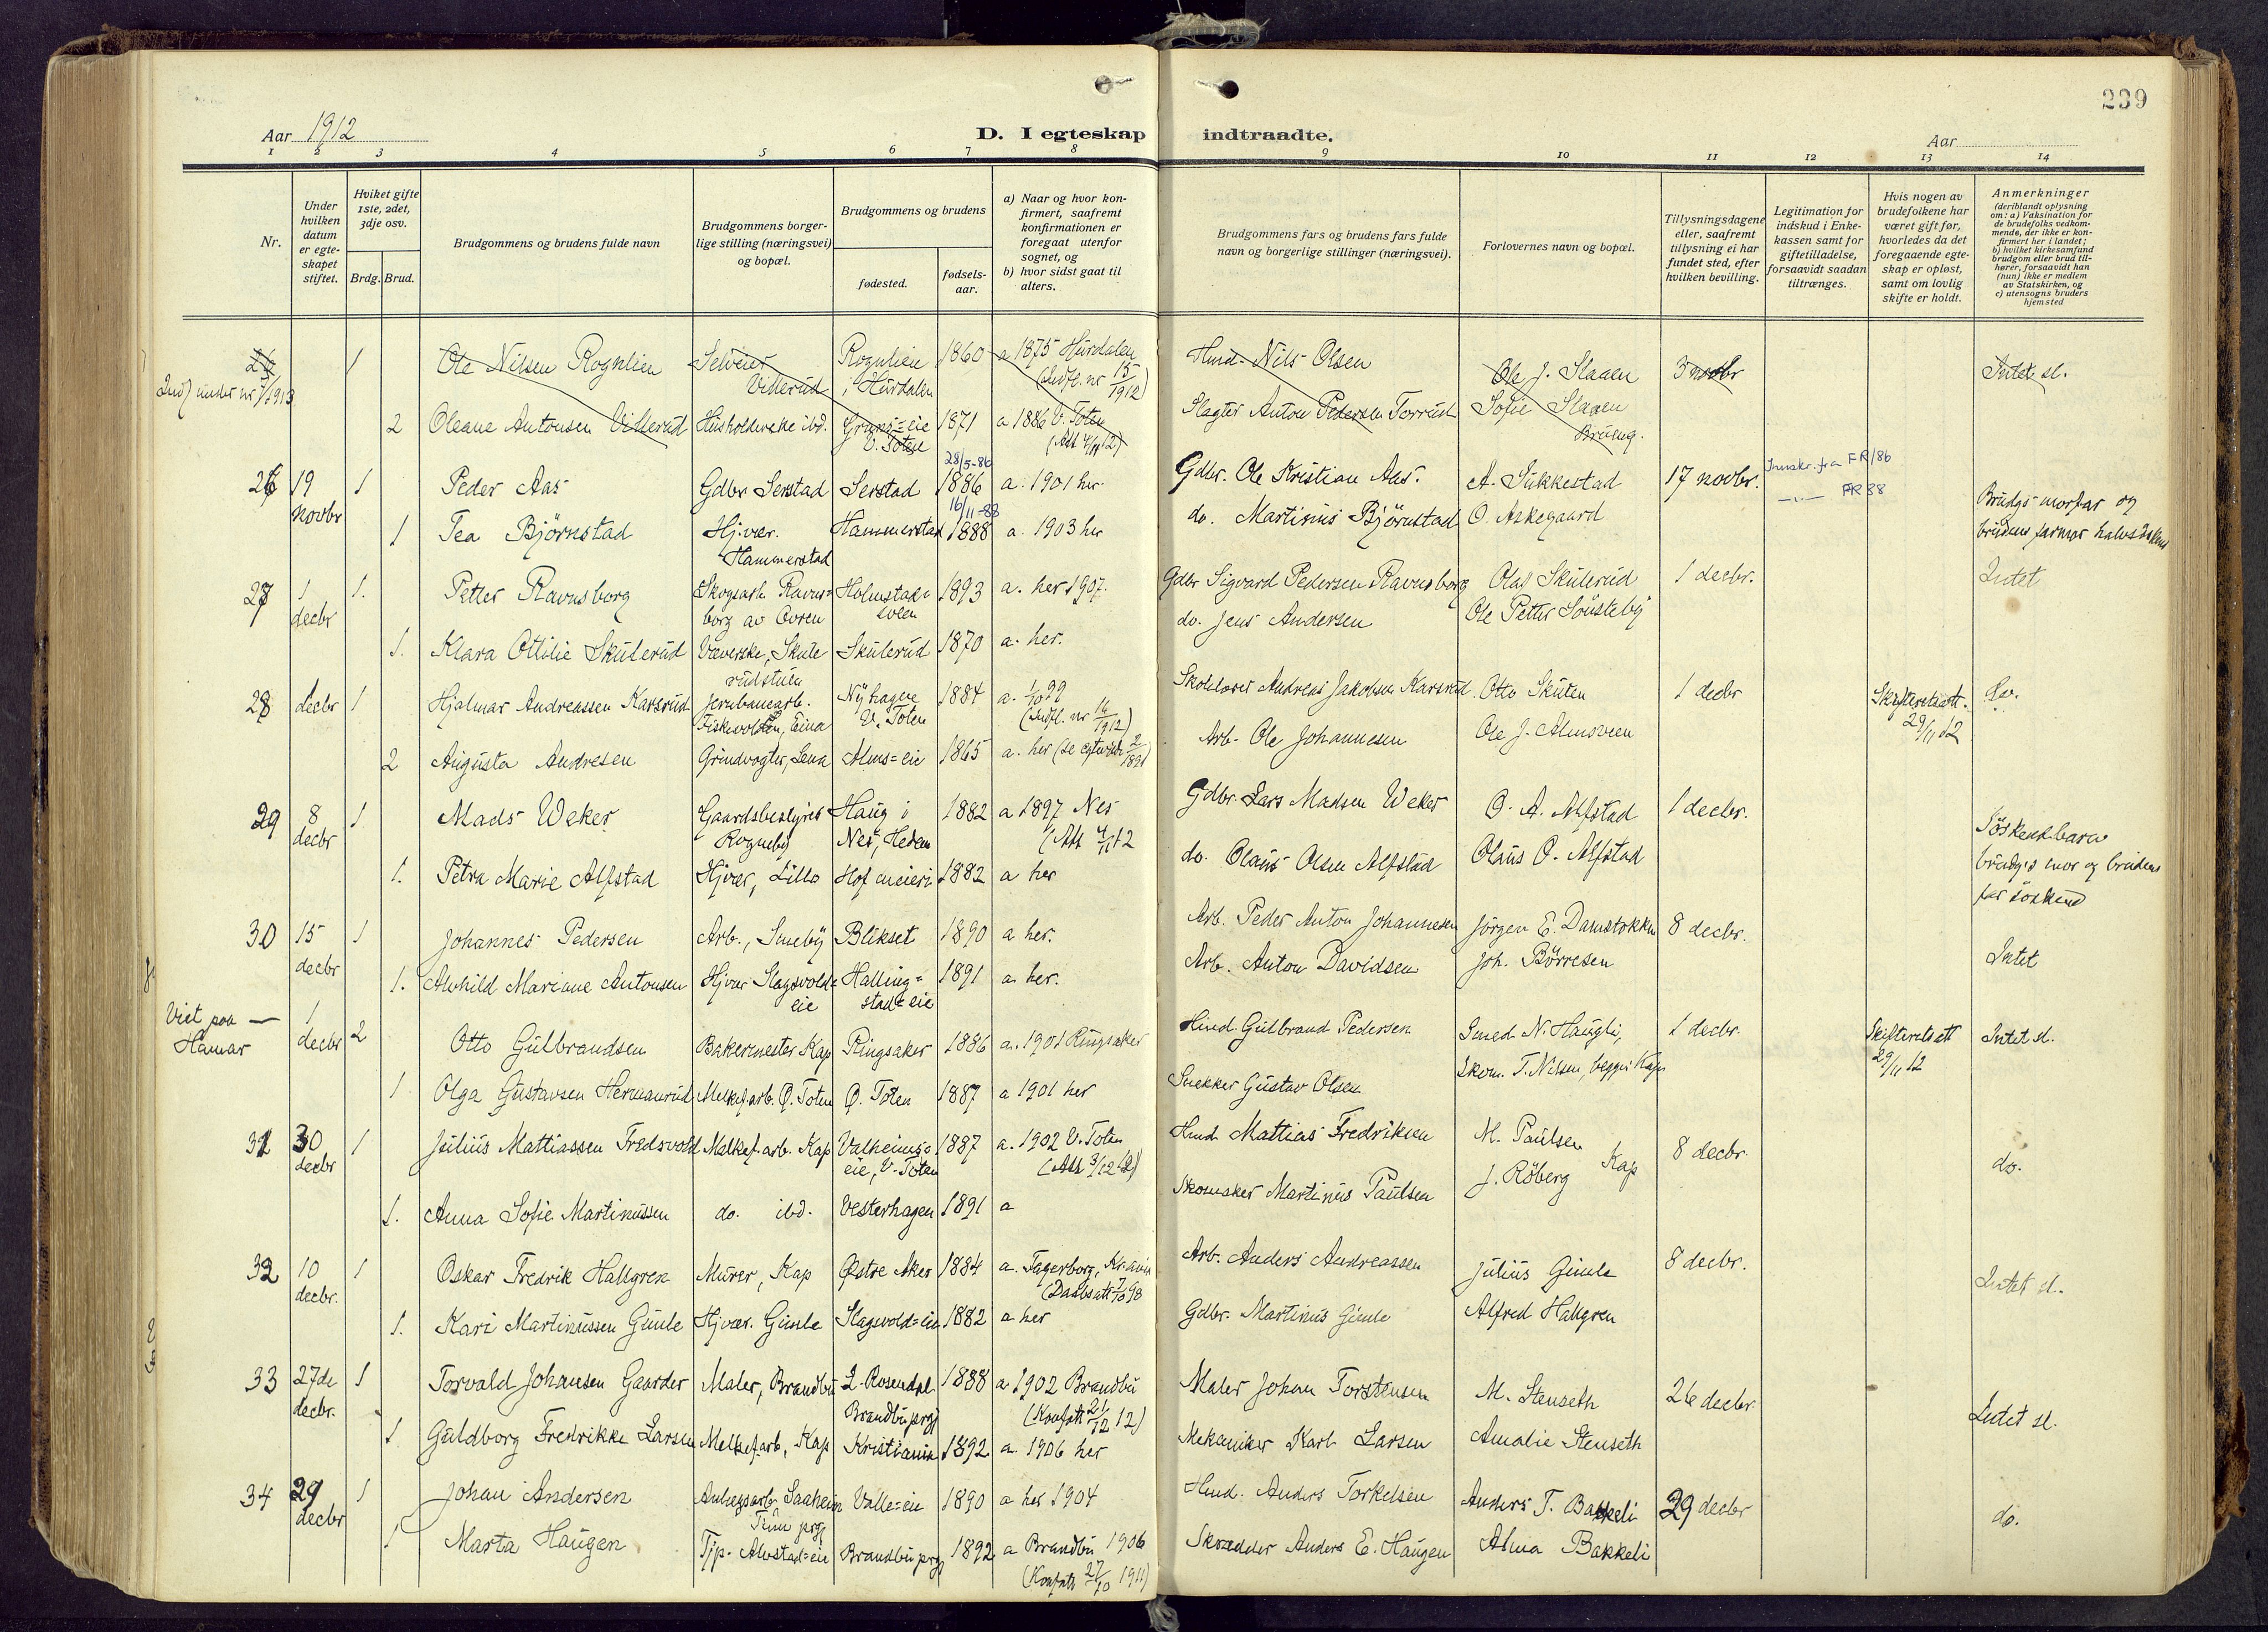 239
Aar 1912
D. I egteskap indtraadte.
Aar
1 2 3 4 5 6 7 8 9 10 11 12 13 14
Nr.
Under hvilken datum er egte-skapet stiftet.
Hviket gifte 1ste, 2det, 3dje osv.
Brdg. Brud.
Brudgommens og brudens fulde navn
Brudgommens borger-lige stilling (næringsvei) og bopæl.
Brudgommens og brudens
fødested.
fødsels-aar.
a) Naar og hvor kon-firmert, saafremt konfirmationen er foregaat utenfor sognet, og
b) hvor sidst gaat til alters.
Brudgommens fars og brudens fars fulde navn og borgerlige stillinger (næringsvei).
Forlovernes navn og bopæl.
Tillysningsdagene eller, saafremt tillysning ei har fundet sted, efter hvilken bevilling.
Legitimation for indskud i Enke-kassen samt for giftetilladelse, forsaavidt saadan tiltrænges.
Hvis nogen av brudefolkene har været gift før, hvorledes da det foregaaende egte-skap er opløst, samt om lovlig skifte er holdt.
Anmerkninger
(deriblandt oplysning om: a) Vaksination for de brudefolks vedkom-mende, der ikke er kon-firmert her i landet; b) hvilket kirkesamfund brudgom eller brud til-hører, forsaavidt han (hun) ikke er medlem av Statskirken, og c) utensogns bruders hjemsted
1 Ole Nilsen Rognlien Selveier Viderud Rognlien i Hurdalen 1860 a 1875 Hurdalen (Indfl. nr 15/1912) Husd. Nils Olsen Ole J. Slaaen 3 novbr Intet sl.
Indf under nr 1/1913
2 Oleane Antonsen Viderud Husholderske ibd. V. Toten 1871 a 1886 V. Toten Slagter Anton Pedersen Torrud Sofie Slaaen
28/5-86
26 19 novbr 1 Peder Aas Gdbr. Serstad Serstad 1886 a. 1901 her. Gdbr. Ole Kristian Aas. A. Sukkestad 17 novbr. Innskr. fra FR/86
16/11-88 FR 88
1 Tea Björnstad Hj.vær. Hammerstad Hammerstad 1888 a. 1903 her do. Martinus Björnstad O. Askegaard Brudgs morfar og brudens farmor
27 1 decbr 1. Petter Ravnsborg Skogsarb. Ravns=borg av Ovren 1893 a. her 1907. Gdbr Sigvard Pedersen Ravnsborg Olaf Skulerud 1 decbr. Intet
1. Klara Ottilie Skulerud Væverske, Skule rudstuen Skulerud 1870 a. her. do. Jens Andersen Ole Petter Sousteby
28 1 decbr 1 Hjalmar Andreassen Karsrud Jernbanearb. Fiskevolden, Eina Nyhagen V. Toten 1884 a. 1/10 99 (Indfl. nr 16/1912) Skoleløser Andreas Jakobsen Karsrud Otto Skuten 1 decbr Skifteretsatt. 29/11 12 do.
2 Augusta Andresen Grindvogter, Lena Alms=eie 1865 a. her Arb. Ole Johannesen Ole J. Almsveen
29 8 decbr 1 Mads Weker Gaardsbestyrer Rogneby Haug i Nes, Hedem 1882 a 1897 Nes (Att 4/11 12 Gdbr. Lars Madsen Weker O. A. Alfstad 1 decbr. Söskendbarn
1. Petra Marie Alfstad Hjvær, Lillo Hof meieri 1882 a her do. Olaus Olsen Alfstad Olaus O. Alfstad brudgs mor og brudens far söskend
30 15 decbr 1 Johannes Pedersen Arb., Smeby Blikset 1890 a her. Arb. Peder Anton Johannesen Jörgen E. Damstokken 8 decbr. Intet
1. Alvhild Mariane Antonsen Hjvær Slagsvold=eie Halling=stad=eie 1891 a her. Arb. Anton Davidsen Joh. Börresen
Viet paa Hamar — 1 decbr 2 Otto Gulbrandsen Bakermester Kap Ringsaker 1886 a. 1901 Ringsaker Husd. Gulbrand Pedersen Smed N. Haugli, 1 decbr. Skifteretsatt 29/11 12 Intet sl.
1 Olga Gustavsen Hermanrud Melkef.arb. Ø. Toten Ø. Toten 1887 a 1901 her Snekker Gustav Olsen Skom. T. Nilsen, begge Kap
31 30 decbr 1 Julius Mattiassen Fredsvold Melkef.arb. Kap Valheims=eie, V. Toten 1887 a. 1902 V. Toten (Att 3/12 12) Husd. Mattias Fredriksen M. Paulsen Kap 8 decbr. do.
1. Anna Sofie Martinussen do. ibd. Vesterhagen 1891 a Skomaker Martinus Paulsen J. Röberg
32 10 decbr. 1 Oskar Fredrik Hallgren Murer, Kap Østre Aker 1884 a. Fagerborg, Kr.ania (Daabsatt 7/10 98 Arb. Anders Andreassen Julius Gimle 8 decbr. Intet sl.
1. Kari Martinussen Gimle Hjvær. Gimle Slagsvold=eie 1882 a her Gdbr. Martinus Gimle Alfred Hallgren
33 27de decbr. 1 Torvald Johansen Gaarder Maler, Brandbu L. Rosendal Brandbu prgj 1888 a 1902 Brandbu (Konfatt 21/12 12) Maler Johan Torstensen M. Stenseth 26 decbr Intet sl.
1 Guldborg Fredrikke Larsen Melkef.arb, Kap Kristiania 1892 a. 1906 her Mekaniker Karl Larsen Amalie Stenseth
34 29 decbr 1 Johan Andersen Anlegsarb. Saaheim Tinn prgj Valle=eie 1890 a her 1904 Husd. Anders Torkelsen Anders T. Bakkeli 29 decbr do.
1 Marta Haugen Tjp. Alvstad=eie Brandbu prgj 1892 a Brandbu 1906 (Konfatt 27/10 1911) Skrædder Anders E. Haugen Alma Bakkeli